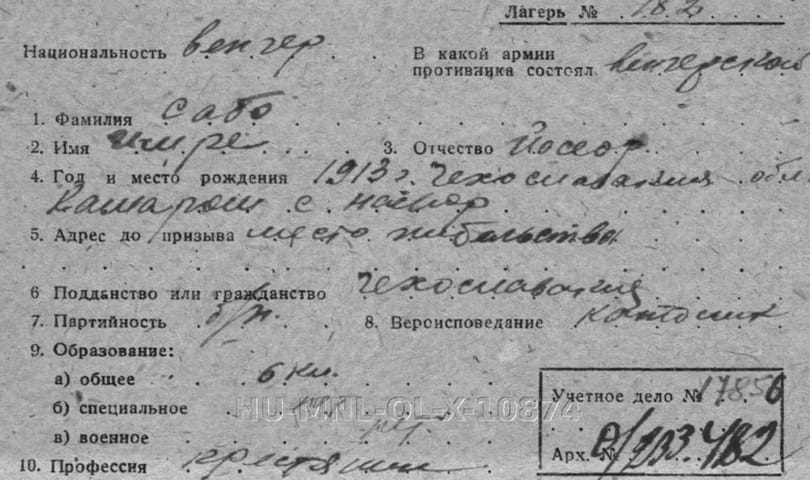 Лагерь № 182
Национальность венгер
В какой армии противника состоял венгерской
1. Фамилия Сабо
2. Имя Имре 3. Отчество Йосеф
4. Год и место рождения 1913 г. Чехославакия обл.
Камарош с.
5. Адрес до призыва место жительства
6 Подданство или гражданство Чехославакия
7. Партийность б/п. 8. Вероисповедание католик
9. Образование:
а) общее 6 кл.
б) специальное нет
в) военное нет
10. Профессия крестянин
Учетное дело № 17856
Арх. № 0/233482
HU-MNL-OL-X-10874